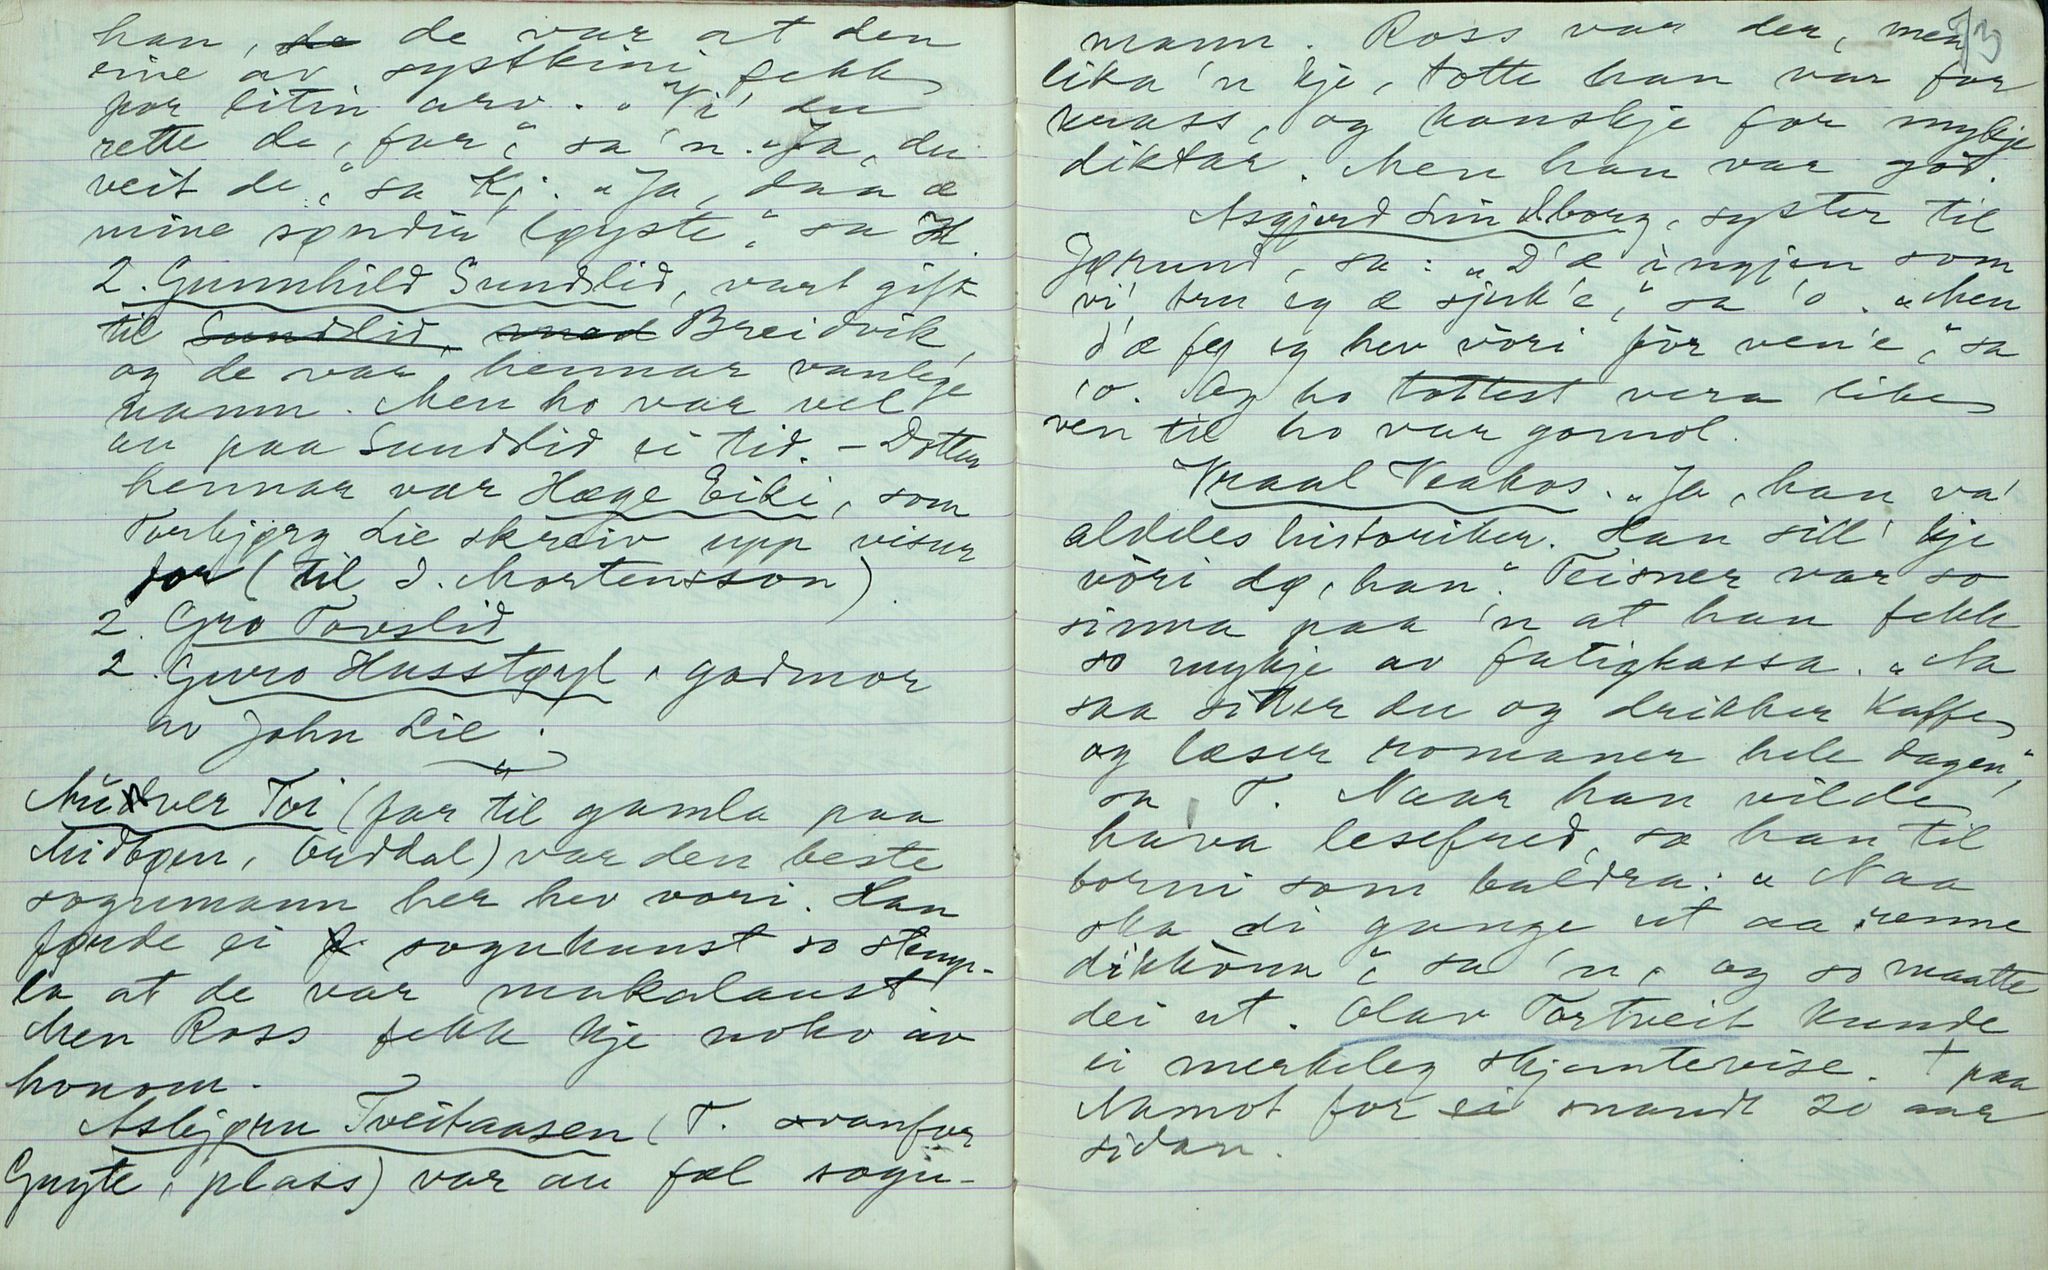 han, de de var at den
eine av systkini fekk
for litin arv. "Vi' du
rette de, far," sa 'n. "Ja, du
veit de," sa Kj. "Ja, daa æ
mine søndir løyste," sa H.
2. Gunnhild Sundslid, vart gift
til Sundslid, med Breidvik,
og de var hennar vanlege
namn. Men ho var vel
au paa Sundslid ei tid. – Dotter
hennar var Hæge Eiki, som
Torbjørg Lie skreiv upp visur
for (til I. Mortensson).
2. Gro Tovslid
2. Guro Husstøyl, godmor
av John Lie.
Aūdver Tvi (far til gamla paa
Midbøen, Orddal) var den beste
sogumann her hev vori. Han
førde ei sogukunst so stemp-
la at de var makalaust.
Men Ross fekk kje noko av
honom.
Asbjørn Tveitaasen (T. ovanfor
Grøyte, plass) var au fæl sogu-
73
mann. Ross var der, men
lika 'n kje, totte han var for
krass, og kanskje for mykje
diktar. Men han var god.
Asgjerd Lindborg, syster til
Jørund, sa: "D'æ ingjen som
vi', tru eg æ sjuk'e," sa 'o. "Men
d'æ fy eg hev vòri for ven'e," sa
'o. Og ho tottest vera like
ven til ho var gomol.
Vraal Vaakos. "Ja, han va'
aldeles historiker. Han sill' kje
vòri dø, han." Teisner var so
sinna paa 'n at han fekk
so mykje av fatigkassa. "Na
saa sitter du og drikker Kaffe
og læser romaner hele dagen,"
sa T. Naar han vilde
hava lesefred, sa han til
borni som baldra: "Naa
ska di gange ut aa renne
dikkònn", sa 'n, og so maatte
dei ut. Olav Tortveit kunde
ei merkeleg skjemtevise. + paa
Aamot for ei snaudt 20 aar
sidan.